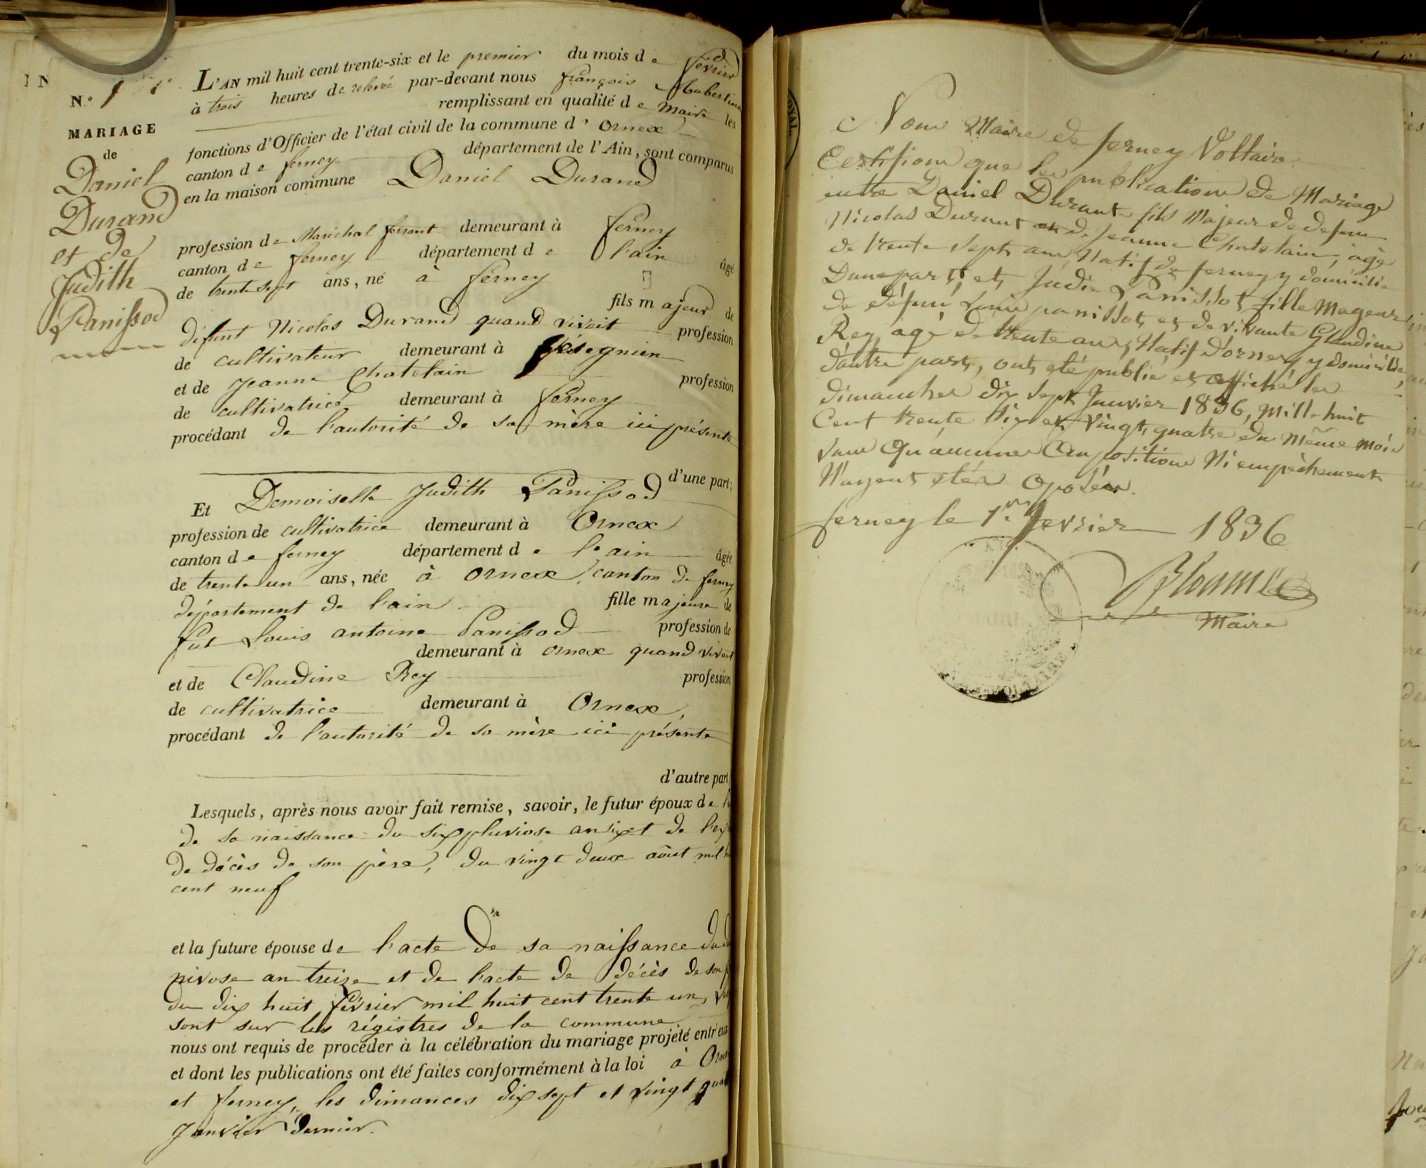 N.° 1er
MARIAGE
de
Daniel
Durand
et de
Judith
Panissod
L'AN mil huit cent trente-six et le premier du mois de février
à trois heures de relevé par-devant nous françois hubertin
remplissant en qualité de Maire les
fonctions d'Officier de l'état civil de la commune d'Ornex
canton de ferney département de l'Ain, sont comparus
en la maison commune Daniel Durand
profession de Maréchal ferrant demeurant à ferney
canton de ferney département de l'ain âgé
de trente sept ans, né à ferney
fils majeur de
défunt Nicolas Durand quand vivait profession
de cultivateur demeurant à
et de Jeanne Chatelain profession
de cultivatrice demeurant à ferney
procédant de l'autorité de sa mère ici présente
d'une part;
Et Demoiselle Judith Panissod
profession de cultivatrice demeurant à Ornex
canton de ferney département de l'ain âgée
de trente un ans, née à ornex, canton de ferney
département de l'ain fille majeure de
fut Louis antoine Panissod profession de
demeurant à ornex quand vivait
et de Claudine Rey profession
de cultivatrice demeurant à Ornex,
procédant de l'autorité de sa mère ici présente
d'autre part
Lesquels, après nous avoir fait remise, savoir, le futur époux de
de sa naissance du six pluviose an sixet de
de décès de son père, du vingt deux août mil
cent neuf
et la future épouse de l'acte de sa naissance du
nivose an treize et de l'acte de décès de son
du dix huit février mil huit cent trente un,
sont sur les régistres de la commune
nous ont requis de procéder à la célébration du mariage projeté entr'eux
et dont les publications ont été faites conformément à la loi à
et ferney, les dimances dix sept et vingt
janvier dernier.
Nous Maire de ferney Voltaire
Certifions que les publications de Mariage
entre Daniel Durant fils Majeur de defeu
Nicolas Durant et de jeanne Chatelain, âgé
de trente sept ans Natif de ferney y domicilié
Dune part, et Judie Panissot fille Mageure
de défeu Louis panissot et de vivante Glaudine
Rey, agé de trente ans, Natif d'ornex y domicilié
dautre part, ont été publié et affiché les
dimanches dix sept Janvier 1836, mille huit
Cent trente six et Vingt quatre du Même mois
sans qu'aucune Oppositions Ni empèchement
N'ayent étés oposés.
ferney le 1er fevrier 1836
Maire